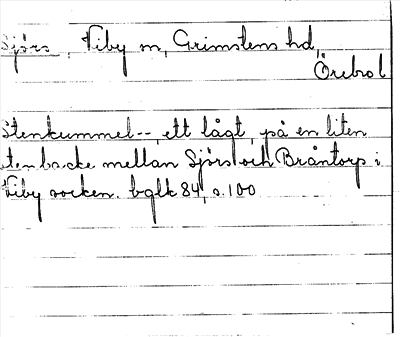 Sjörs, Viby sn, Grimstens hd,
Örebro l
Stenkummel--, ett lågt, på en liten
stenbacke mellan Sjörs och Bråntorp i
Viby socken. bglk 84, s. 100